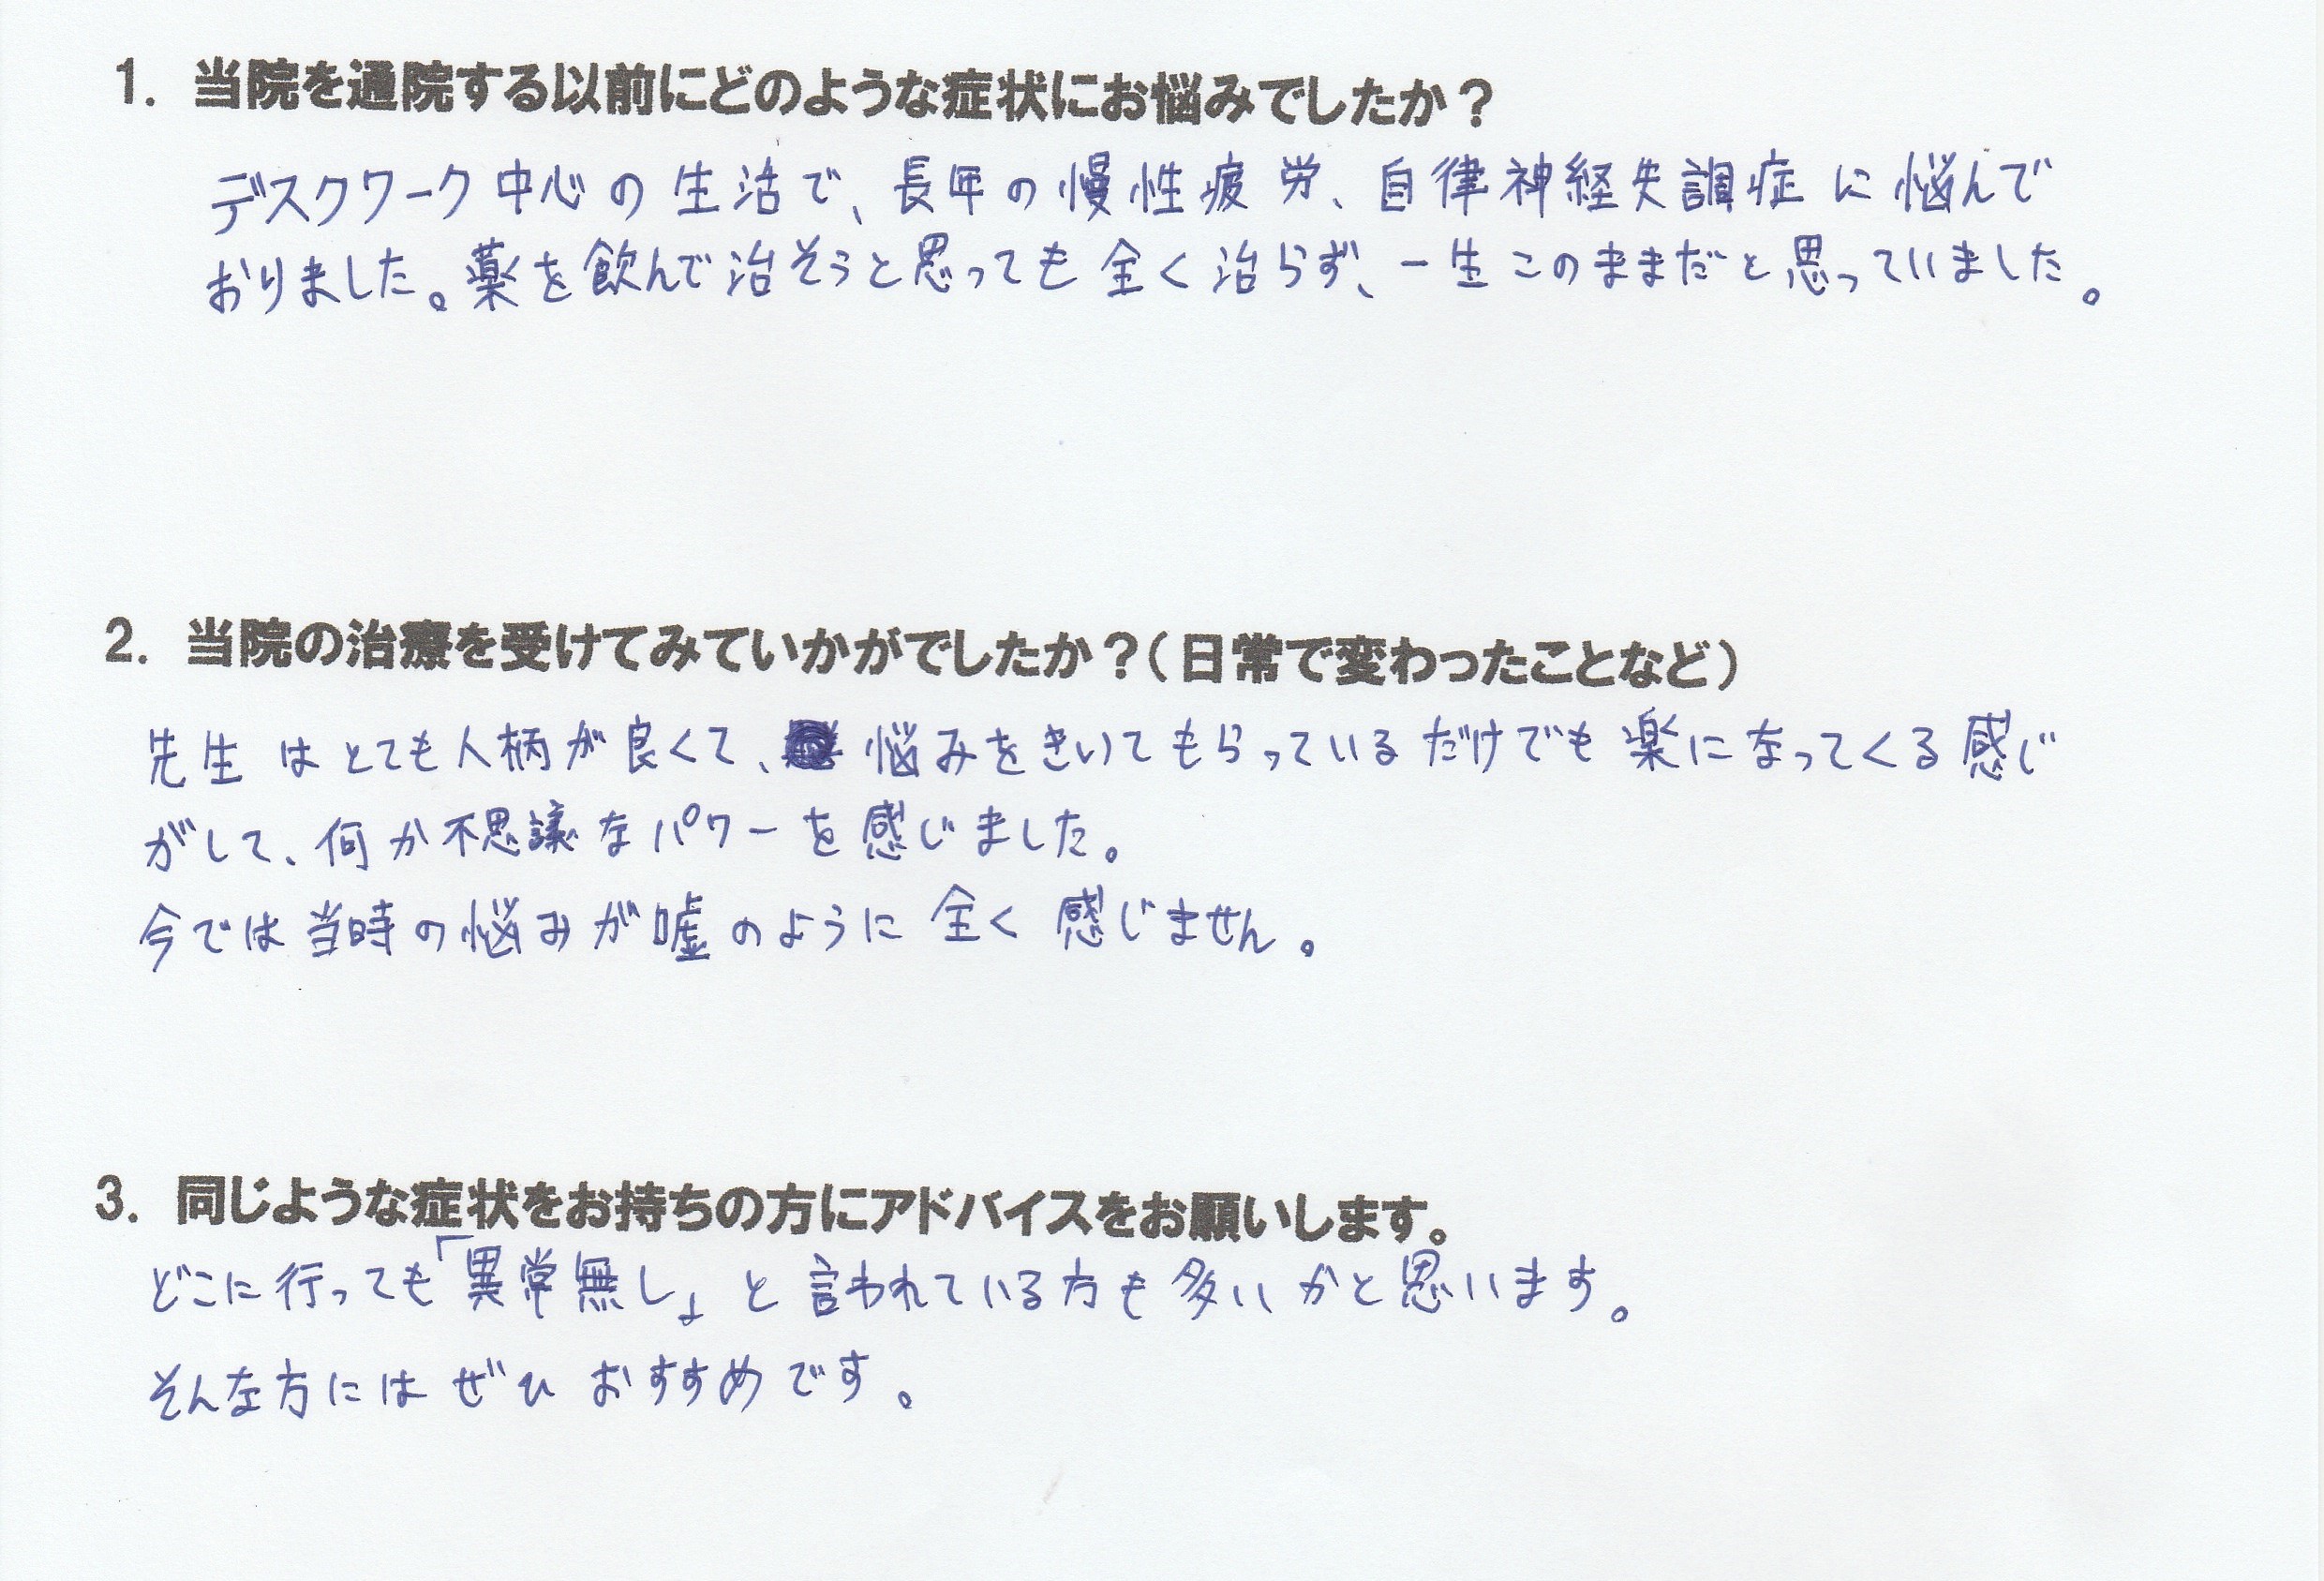 1. 当院を通院する以前にどのような症状にお悩みでしたか？
デスクワーク中心の生活で、長年の慢性疲労、自律神経失調症に悩んで
おりました。薬を飲んで治そうと思っても全く治らず、一生このままだと思っていました。
2. 当院の治療を受けてみていかがでしたか？（日常で変わったことなど）
先生はとても人柄が良くて、悩みをきいてもらっているだけでも楽になってくる感じ
がして、何か不思議なパワーを感じました。
今では当時の悩みが嘘のように全く感じません。
3. 同じような症状をお持ちの方にアドバイスをお願いします。
どこに行っても「異常無し」と言われている方も多いかと思います。
そんな方にはぜひおすすめです。